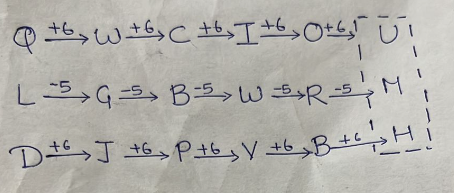 Q +6→ W +6→ C +6→ I +6→ O +6→ U
L -5→ G -5→ B -5→ W -5→ R -5→ M
D +6→ J +6→ P +6→ V +6→ B +6→ H